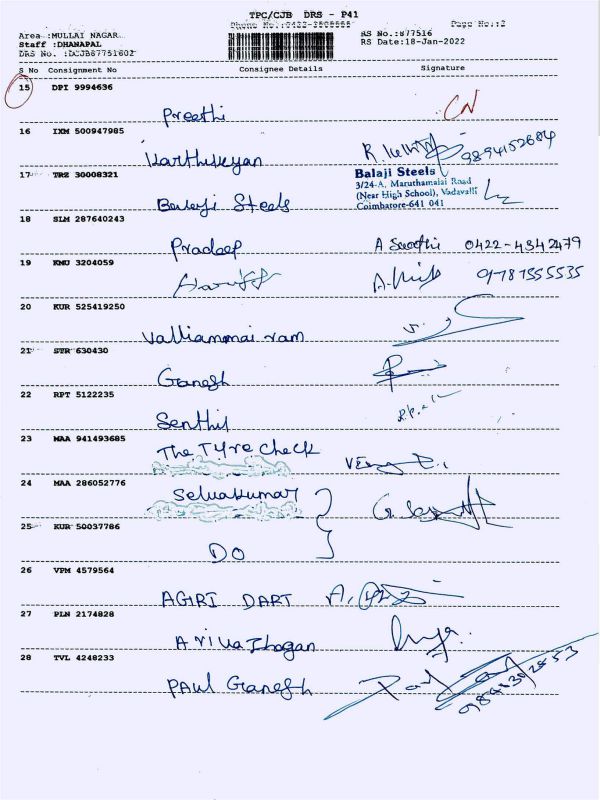 TPC/CJB DRS - P41
Page No.:2
Area :MULLAI NAGAR
RS No.:877516
Staff :DHANAPAL
RS Date:18-Jan-2022
DRS No. :DCJB87751602
S No Consignment No Consignee Details Signature
15 DPI 9994636
Preethi CN
16 IXM 500947985
Karthikeyan 9894152684
17 TRZ 30008321
Balaji Steels
3/24-A, Maruthamalai Road
(Near High School), Vadavalli
Coimbatore-641 041
Balaji Steels
18 SLM 287640243
Pradeep 0422-4342479
19 KMU 3204059
9787555535
20 KUR 525419250
Valliammai ram
21 STR 630430
Ganesh
22 RPT 5122235
Senthil
23 MAA 941493685
The Tyre Check
24 MAA 286052776
Selvakumar
25 KUR 50037786
DO
26 VPM 4579564
AGIRI DART
27 PLN 2174828
28 TVL 4248233
PAUL Ganesh